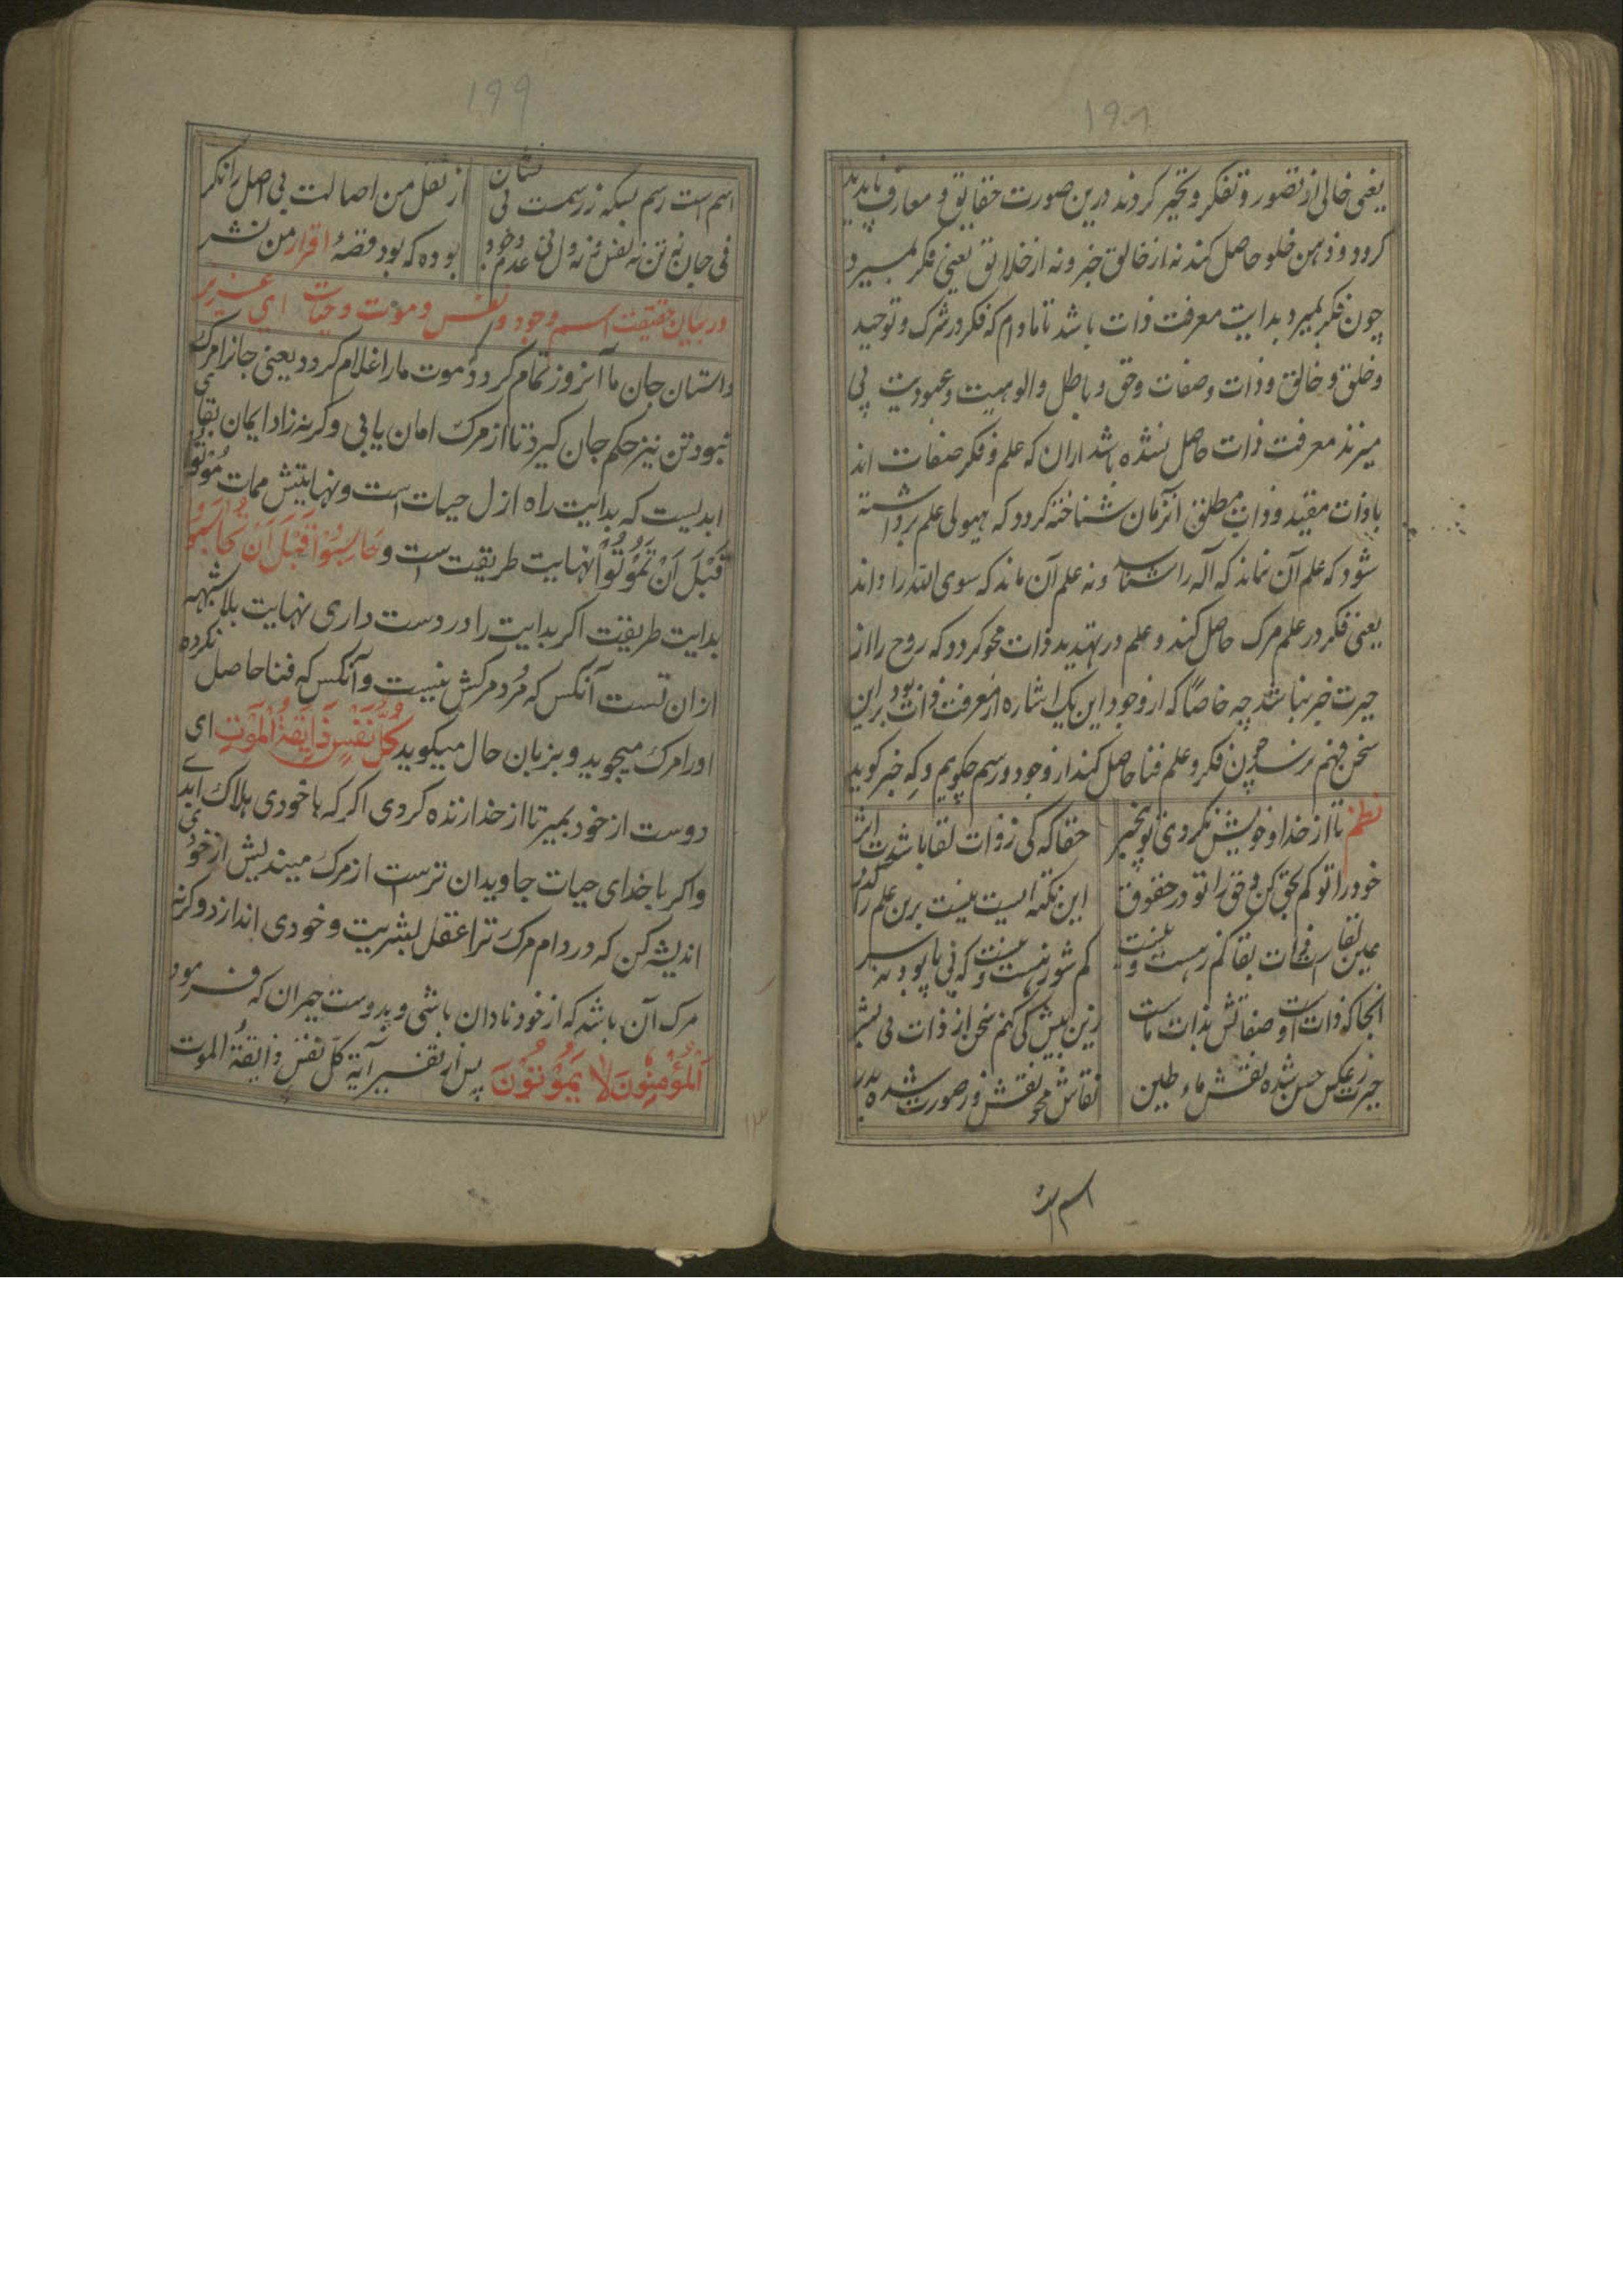 ۱۹۸
یعنی خالی از تصور و تفکر و تحیر کردند درین صورت حقایق و معارف ناپدید
کردد و ذهن خلو حاصل کند نه از خالق خبر و نه از خلایق یعنی فکر بمیرد
چون فکر بمیرد بدایت معرفت ذات باشد تا مادام که فکر در شرک و توحید
و خلق و خالق و ذات و صفات و حق و باطل و الوهیت و عبودیت پی
میزند معرفت ذات حاصل نشده باشد از ان که علم و فکر صفات اند
با ذات مقید و ذات مطلق آنزمان شناخته کردد که هیولی علم برداشته
شود که علم آن نماند که آله را شناسد و نه علم آن ماند که سوی الله را داند
یعنی فکر در علم مرک حاصل کند و علم در تهدید ذات محو کردد که روح را از
حیرت خبر نباشد چه خاصا که از وجود این یک اشاره از معرفت ذات بود بر این
سخن فهم نرسد چون فکر و علم فنا حاصل کند از وجود و رسم چکویم و که خبر کوید
نظم تا از خدا و خویش نکردی تو بیخبر حقا که کی ز ذات لقا باشدت اثر
خود را تو کم بحق کن و حق را تو در حقوق این نکته ایست نیست برین علم را کذر
عین لقا ذات بقا کم ز هست و نیست کم شو ز نیست و نیست که نی پا بود نه سر
انجا که ذات اوست صفاتش بذات ماست زین بیش کی کنم سخن از ذات بی بشر
حیرت ز عکس حسن شده نقش ماء طین نقاش محو نقش و ز صورت شده بدر
اسم است
۱۹۹
اسم است رسم بسکه ز رسمت بی نشان از نقل من اصالت بی اصل را نکر
نی جان نه تن نه نفس نه نه دل نی عدم وجود بوده که بود قصهٔ اقرار من نشر
در بیان حقیقت اسم وجود و نفس و موت و حیات ای عزیز
داستان جان ما آنروز تمام کردد که موت ما را غلام کردد یعنی جانرا مرک
نبود تن نیز حکم جان کیرد تا از مرک امان یابی و کرنه زاد ایمان بقای
ابدیست که بدایت راه ازل حیات است و نهایتش ممات مُوْتُوْا
قَبْلَ اَنْ تَمُوْتُوْا نهایت طریقت است و حَاسِبُوْا قَبْلَ اَنْ تُحَاسَبُوْا
بدایت طریقت اکر بدایت را در دست داری نهایت بلا شبهه
از ان تست آنکس که مُرد مرکش نیست و آنکس که فنا حاصل نکرده
او را مرک میجوید و بزبان حال میکوید کُلُّ نَفْسٍ ذَایِقَةُ الْمَوْتِ ای
دوست از خود بمیر تا از خدا زنده کردی اکر که با خودی هلاک ابدی
و اکر با خدای حیات جاویدان ترست از مرک میندیش از خودی
اندیشه کن که در دام مرک ترا عقل بشریت و خودی اندازد و کرنه
مرک آن باشد که از خود نادان باشی و بدوست حیران که فرمود
اَلْمُؤْمِنُوْنَ لَا یَمُوْتُوْنَ پس از تفسیر آیة کلّ نفس ذایقةُ الموت